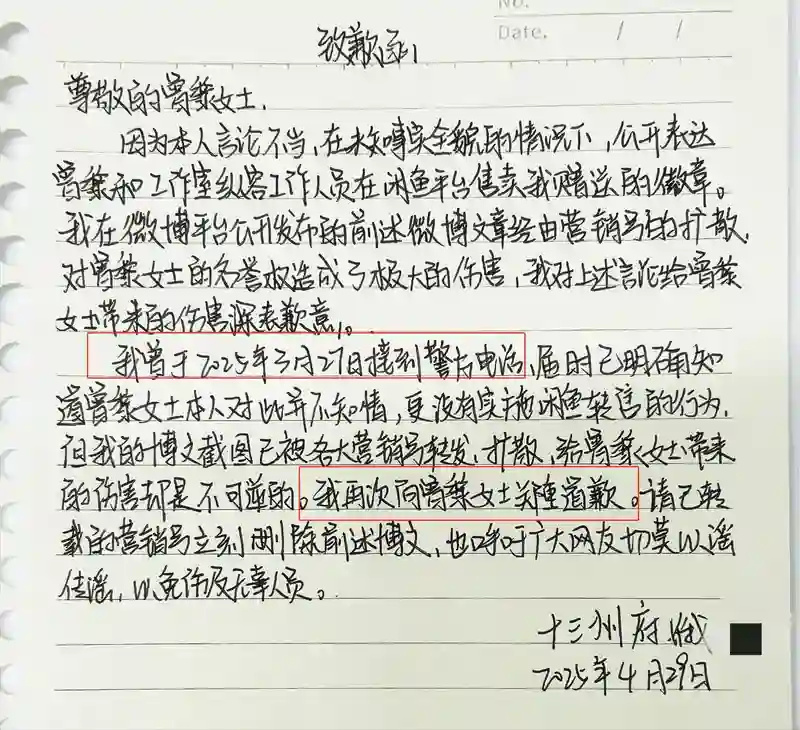 No.
Date.  /  /
致歉函
尊敬的曾黎女士,
因为本人言论不当,在未知事实全貌的情况下,公开表达
曾黎和工作室纵容工作人员在闲鱼平台售卖我赠送的徽章。
我在微博平台公开发布的前述微博文章经由营销号的扩散,
对曾黎女士的名誉权造成了极大的伤害,我对上述言论给曾黎
女士带来的伤害深表歉意。
我曾于2025年3月27日接到警方电话,届时已明确知
道曾黎女士本人对此并不知情,更没有实施闲鱼转售的行为,
但我的博文截图已被各大营销号转发、扩散,给曾黎女士带来
的伤害却是不可逆的。我再次向曾黎女士郑重道歉。请已转
载的营销号立刻删除前述博文,也呼吁广大网友切莫以谣
传谣,以免伤及无辜人员。
十三州府
2025年4月29日